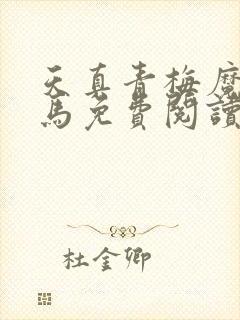 天真青梅魔
馬免費閱讀
杜金卿